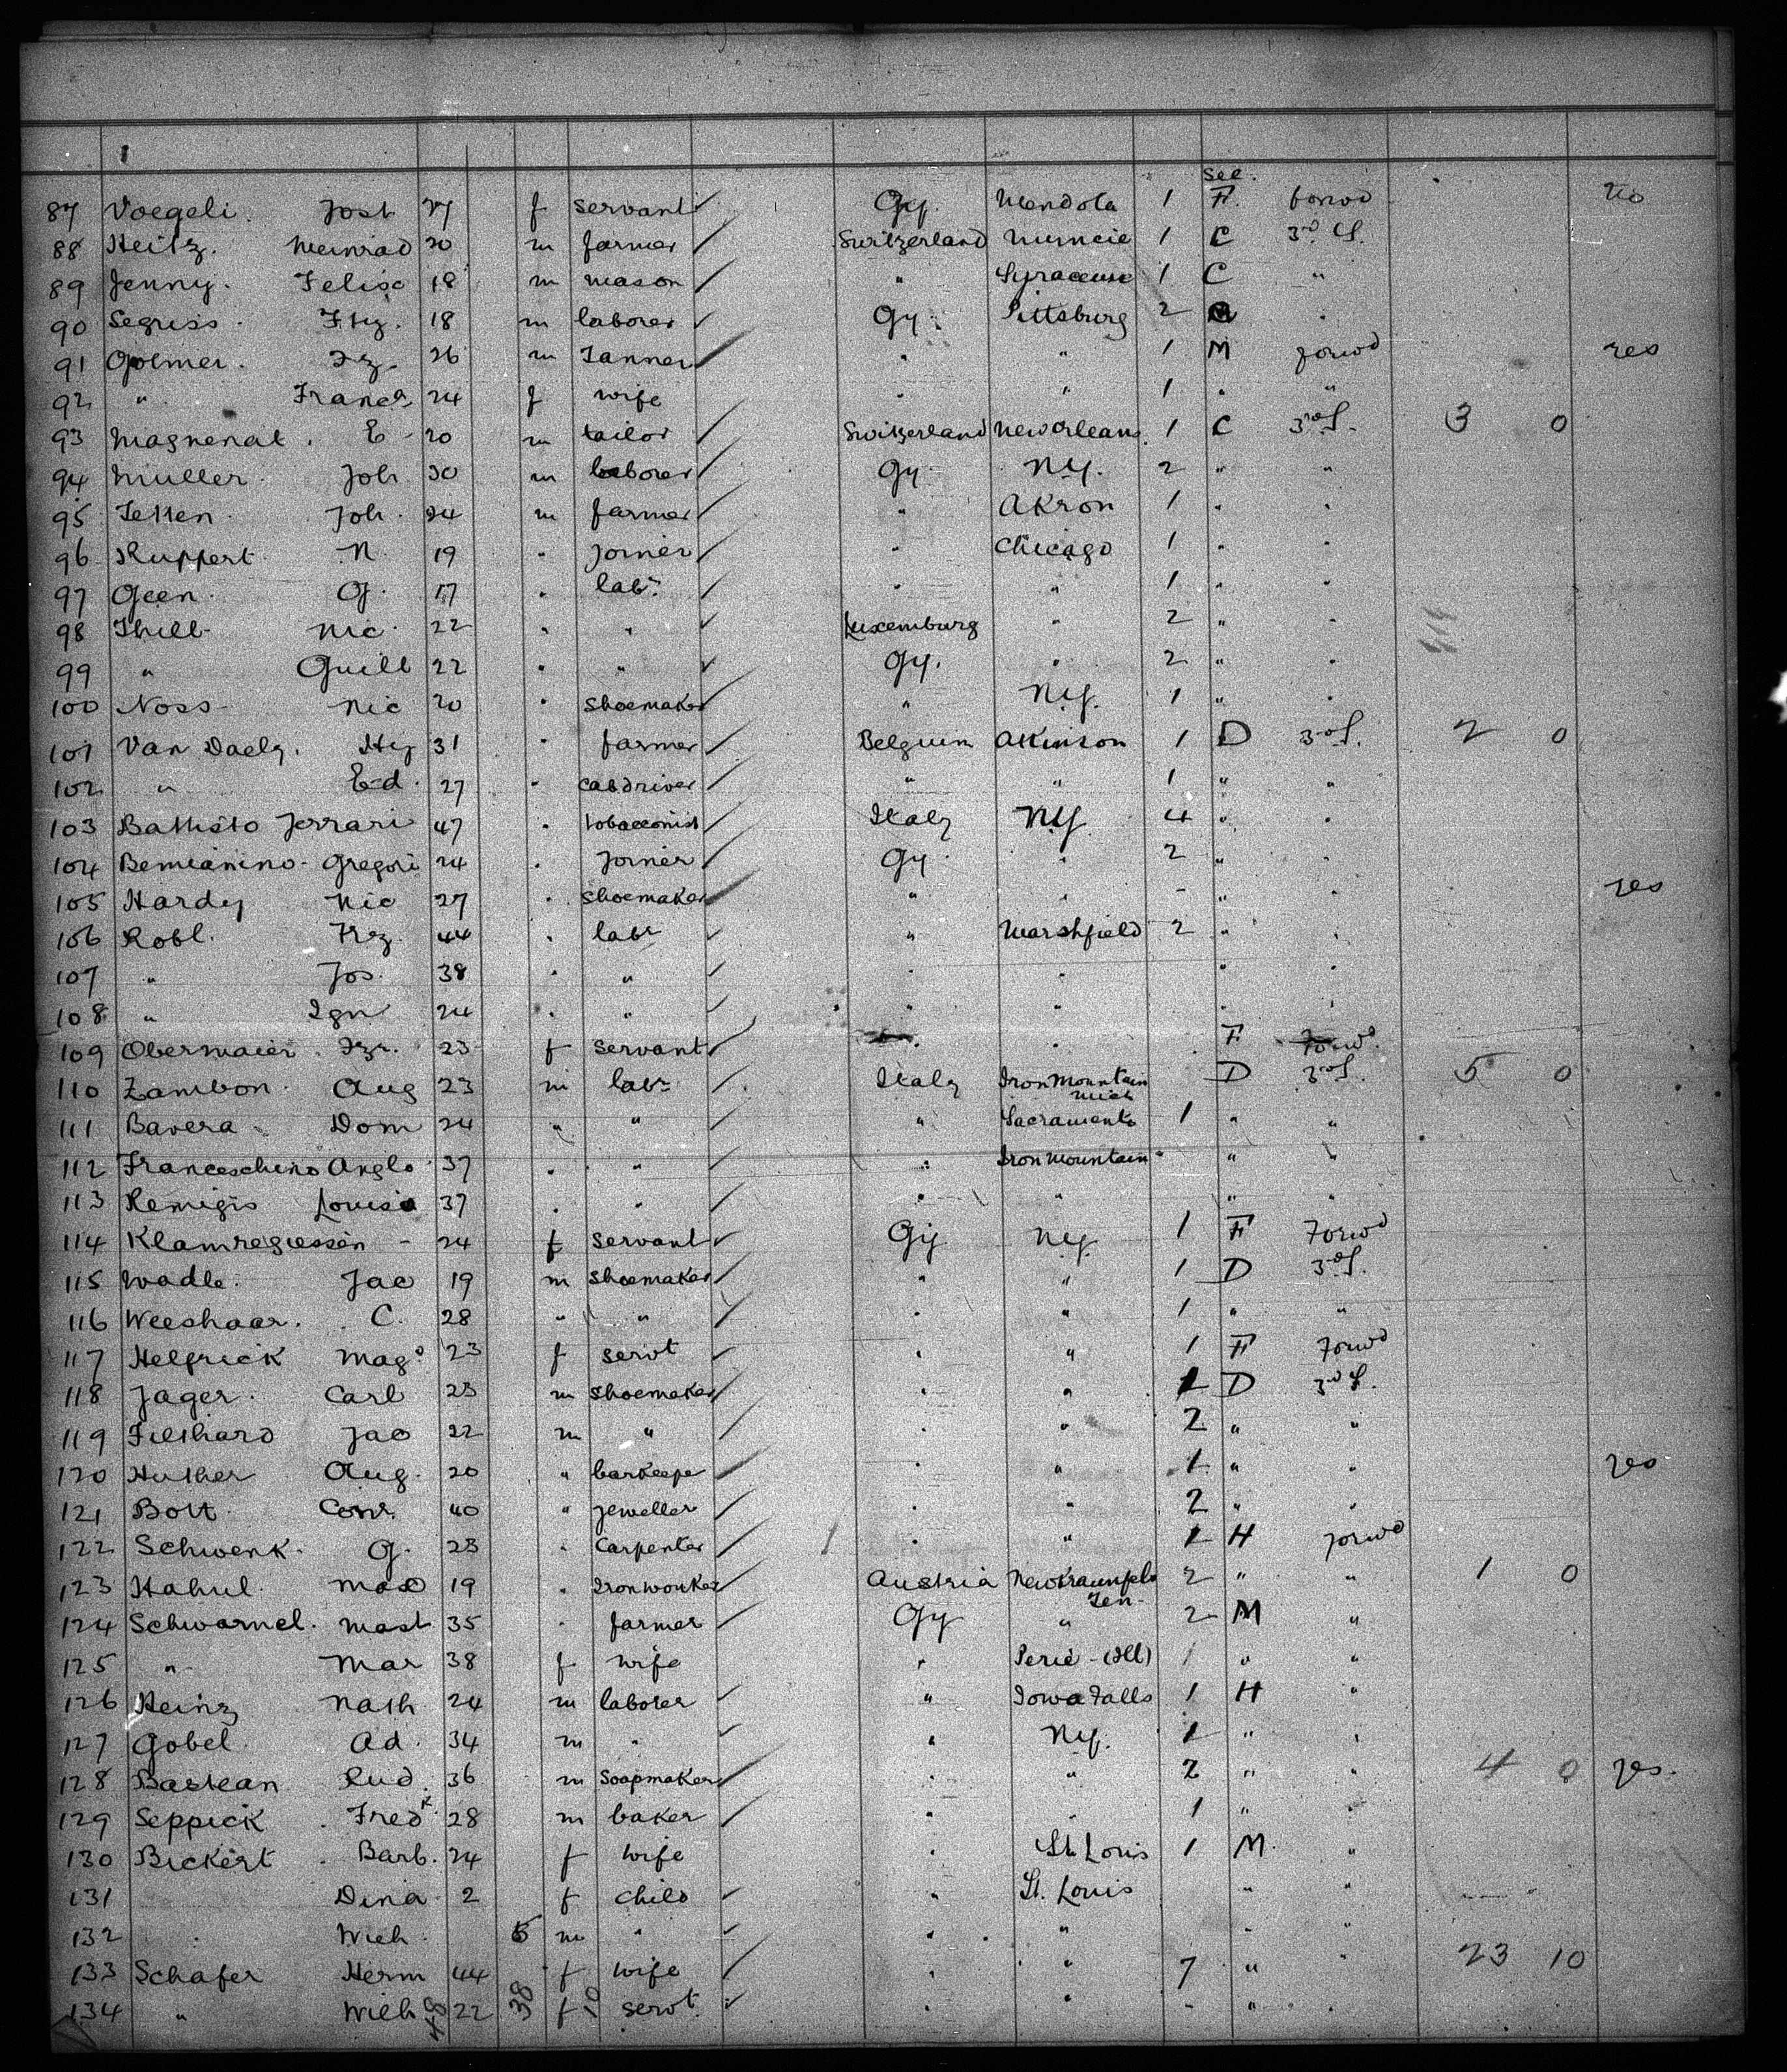 See.
87 Voegeli. Jost 27 f servant Gy. Mendota 1 F. forwd no
88 Heitz. Meinrad 20 m farmer Switzerland Muncie 1 C 3rd S.
89 Jenny. Felix 18 m mason " Syracuse 1 C "
90 Segriss. Hy. 18 m laborer Gy. Pittsburg 2 "
91 Fz. 26 m Tanner " " 1 M forwd yes
92 " Francs 24 f wife " " 1 " "
93 Magnenat. E 20 m tailor Switzerland New Orleans. 1 C 3rd S. 3 0
94 Muller. Joh 30 m laborer Gy NY. 2 " "
95 Jetten Joh. 24 m farmer " Akron 1 " "
96 Ruppert N. 19 " Joiner " Chicago 1 " "
97 Geen. G. 17 " labr " " 1 " "
98 Thill Nic. 22 " " Luxemburg " 2 " "
99 " Guill 22 " " Gy. " 2 " "
100 Noss Nic 20 " Shoemaker " NY. 1 " "
101 Van Daely. Hy 31 " farmer Belgium Atkinson 1 D 3rd S. 2 0
102 " Ed. 27 " cabdriver " " 1 " "
103 Battisto Ferrari 47 " tobacconist Italy NY 4 " "
104 Bemianino Gregori 24 " Joiner Gy. " 2 " "
105 Hardy Nic 27 " shoemaker " " - " yes
106 Robl. Frz. 44 " labr " Marshfield 2 " "
107 " Jos. 38 " " " " " "
108 " Ign 24 " " " " " "
109 Obermaier. Fzr. 23 f servant " " F forwd.
110 Zambon. Aug 23 m labr Italy Iron Mountain D 3rd S. 5 0
Mich
111 Bavera Dom 24 " " " Sacramento 1 " "
112 Franceschino Anglo 37 " " " Iron Mountain " " "
113 Remigis Louisa 37 " " " " " "
114 Klamregiessen - 24 f servant Gy NY. 1 F Forwd
115 Wadle. Jac 19 m shoemaker " " 1 D 3rd S.
116 Weeshaar. C. 28 " " " " 1 " "
117 Helfrick Mag. 23 f servt " " 1 F Forwd
118 Jager. Carl 23 m shoemaker " " 1 D 3rd S.
119 Filthard Jac 22 m " " " 2 " "
120 Huther Aug. 20 " barkeepr " " 1 " " yes
121 Bott Conr. 40 " jeweller " " 2 " "
122 Schwenk. G. 23 " Carpenter " " 1 H forwd
123 Max 19 " Ironworker Austria 2 " " 1 0
124 Schwarnel. Mast 35 " farmer Gy " 2 M "
125 " Mar 38 f wife " (Ill) 1 " "
126 Heinz Nath. 24 m laborer " Iowa Falls 1 H "
127 Gobel. Ad. 34 m " " NY. 1 " "
128 Bastean Rud. 36 m Soapmaker " " 2 " " 4 0 yes.
129 Seppick Fredk 28 m baker " " 1 " "
130 Bickert Barb. 24 f wife " St. Louis 1 M. "
131 Dina 2 f child " St. Louis " "
132 " 5 m " " " " "
133 Schafer Herm 44 f wife " " 7 " " 23 10
134 " Wilh 22 f servt. " " " " "
48 38 10